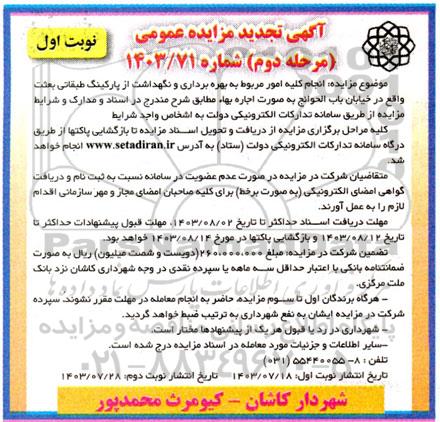 آگهی تجدید مزایده عمومی
(مرحله دوم) شماره ۱۴۰۳/۷۱
نوبت اول
موضوع مزایده: انجام کلیه امور مربوط به بهره برداری و نگهداشت از پارکینگ طبقاتی بعثت
واقع در خیابان باب الحوائج به صورت اجاره بهاء مطابق شرح مندرج در اسناد و مدارک و شرایط
مزایده از طریق سامانه تدارکات الکترونیکی دولت به اشخاص واجد شرایط
کلیه مراحل برگزاری مزایده از دریافت و تحویل اسناد مزایده تا بازگشایی پاکتها از طریق
درگاه سامانه تدارکات الکترونیکی دولت (ستاد) به آدرس www.setadiran.ir انجام خواهد
شد.
متقاضیان شرکت در مزایده در صورت عدم عضویت در سامانه نسبت به ثبت نام و دریافت
گواهی امضای الکترونیکی (به صورت برخط) برای کلیه صاحبان امضای مجاز و مهر سازمانی اقدام
لازم را به عمل آورند.
مهلت دریافت اسناد حداکثر تا تاریخ ۱۴۰۳/۰۸/۰۲، مهلت قبول پیشنهادات حداکثر تا
تاریخ ۱۴۰۳/۰۸/۱۲ و بازگشایی پاکتها در مورخ ۱۴۰۳/۰۸/۱۴ خواهد بود.
تضمین شرکت در مزایده: مبلغ ۲۶۰.۰۰۰.۰۰۰ (دویست و شصت میلیون) ریال به صورت
ضمانتنامه بانکی با اعتبار حداقل سه ماهه یا سپرده نقدی در وجه شهرداری کاشان نزد بانک
ملت مرکزی.
- هرگاه برندگان اول تا سوم مزایده، حاضر به انجام معامله در مهلت مقرر نشوند، سپرده
شرکت در مزایده ایشان به نفع شهرداری به ترتیب ضبط خواهد گردید.
- شهرداری در رد یا قبول هر یک از پیشنهادها مختار است.
- سایر اطلاعات و جزئیات مورد معامله در اسناد مزایده درج شده است.
تلفن: ۸-۵۵۴۴۰۰۵۵ (۰۳۱)
تاریخ انتشار نوبت اول: ۱۴۰۳/۰۷/۱۸ تاریخ انتشار نوبت دوم: ۱۴۰۳/۰۷/۲۸
شهردار کاشان - کیومرث محمدپور